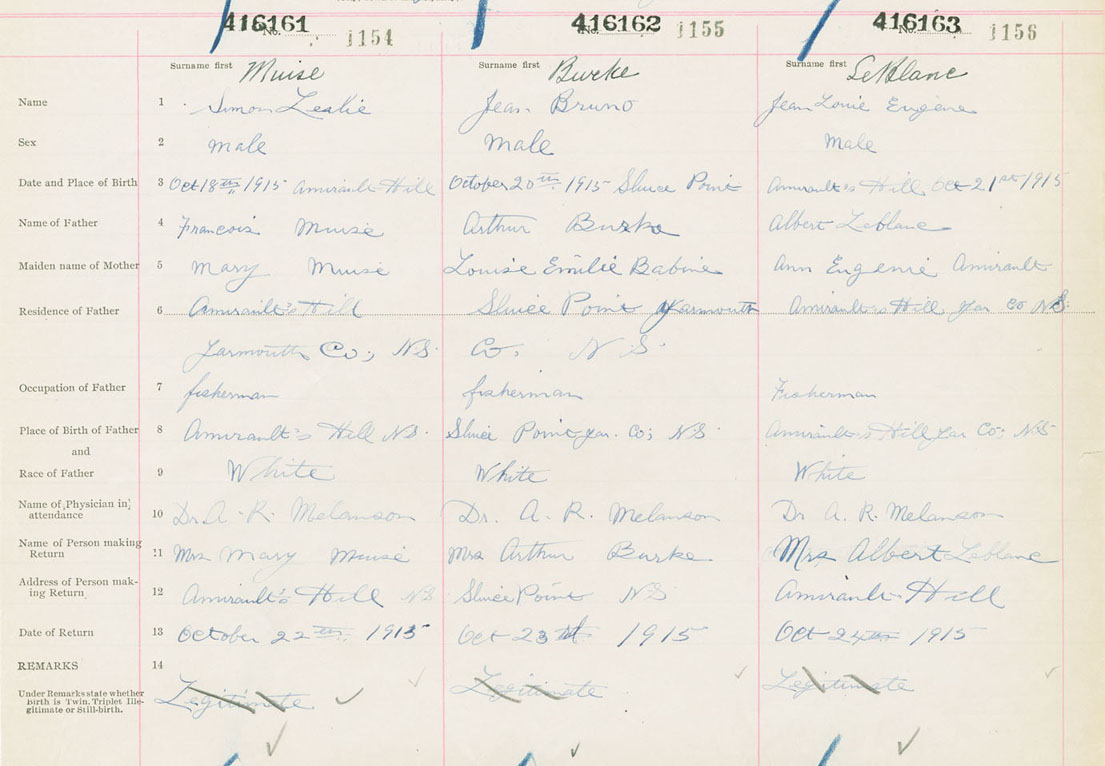 416161 416162 416163
No. 1154 No. 1155 No. 1156
Surname first Muise Surname first Burke Surname first LeBlanc
Name 1 Simon Leslie Jean Bruno Jean Louie Eugene
Sex 2 male male male
Date and Place of Birth 3 Oct 18th 1915 Amirault Hill October 20th 1915 Sluice Point Amirault's Hill Oct 21st 1915
Name of Father 4 Francois Muise Arthur Burke Albert Leblanc
Maiden name of Mother 5 Mary Muise Louise Emilie Babine Ann Eugenie Amirault
Residence of Father 6 Amirault's Hill Sluice Point Yarmouth Amirault's Hill Yar Co N.S.
Yarmouth Co; N.S. Co; N S.
Occupation of Father 7 fisherman fisherman Fisherman
Place of Birth of Father 8 Amirault's Hill N.S. Sluice Point Yar. Co; N.S. Amirault's Hill Yar Co; N.S
and
Race of Father 9 White White White
Name of Physician in
attendance 10 Dr. A. R. Melanson Dr. A. R. Melanson Dr A. R. Melanson
Name of Person making
Return 11 Mrs Mary Muise Mrs Arthur Burke Mrs Albert Leblanc
Address of Person mak-
ing Return 12 Amirault's Hill N.S Sluice Point N.S. Amirault Hill
Date of Return 13 October 22nd 1915 Oct 23rd 1915 Oct 24th 1915
REMARKS 14
Under Remarks state whether
Birth is Twin, Triplet Ille-
gitimate or Still-birth.
Legitimate Legitimate Legitimate